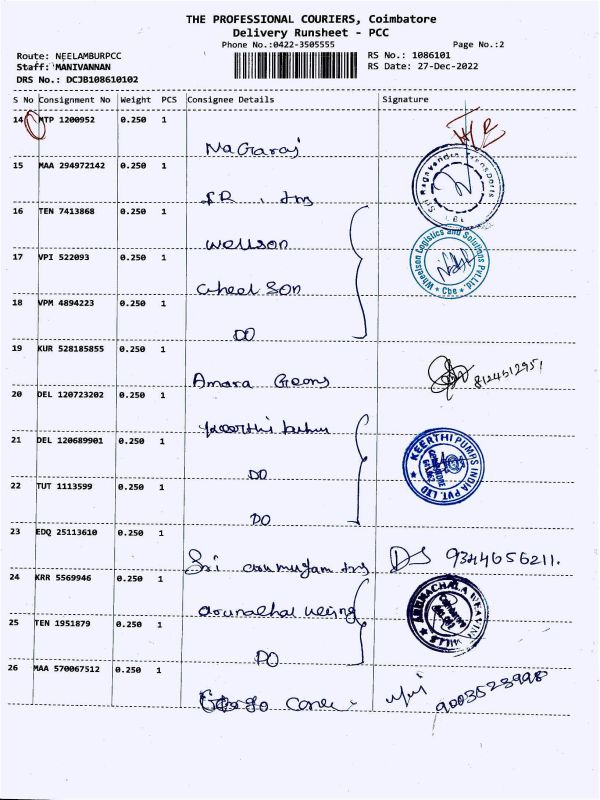 THE PROFESSIONAL COURIERS, Coimbatore
Delivery Runsheet - PCC
Phone No.:0422-3505555 Page No.:2
Route: NEELAMBURPCC RS No.: 1086101
Staff: MANIVANNAN RS Date: 27-Dec-2022
DRS No.: DCJB108610102
S No Consignment No Weight PCS Consignee Details Signature
14 MTP 1200952 0.250 1
Nagaraj
15 MAA 294972142 0.250 1
16 TEN 7413868 0.250 1
17 VPI 522093 0.250 1
Wheel Son
18 VPM 4894223 0.250 1
DO
19 KUR 528185855 0.250 1
Amara 8124512951
20 DEL 120723202 0.250 1
21 DEL 120689901 0.250 1
DO
22 TUT 1113599 0.250 1
DO
23 EDQ 25113610 0.250 1
Sri arumugam DS 9344656211.
24 KRR 5569946 0.250 1
25 TEN 1951879 0.250 1
DO
26 MAA 570067512 0.250 1
9003523998
Wheelson Logistics and Solutions Pvt.Ltd.
* Cbe *
KEERTHI PUMPS INDIA PVT. LTD
ARUNACHALA WEAVING MILLS